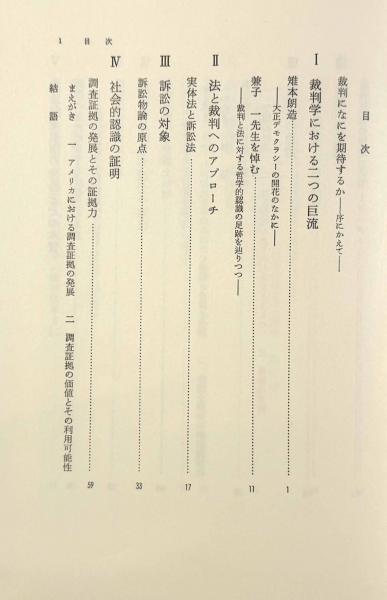 目次 1
目次
裁判になにを期待するか――序にかえて――
Ⅰ 裁判学における二つの巨流
雉本朗造 1
――大正デモクラシーの開花のなかに――
兼子 一先生を悼む 11
――裁判と法に対する哲学的認識の足跡を辿りつつ――
Ⅱ 法と裁判へのアプローチ
実体法と訴訟法 17
Ⅲ 訴訟の対象
訴訟物論の原点 33
Ⅳ 社会的認識の証明
調査証拠の発展とその証拠力 59
まえがき 一 アメリカにおける調査証拠の発展 二 調査証拠の価値とその利用可能性
結語